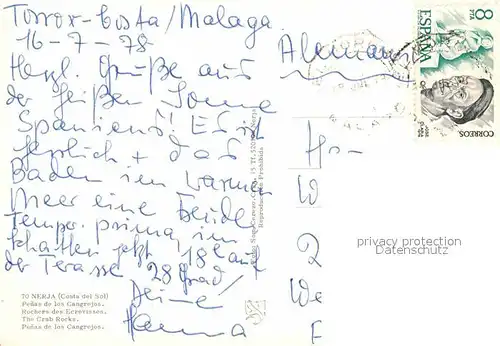 Torrox-Costa/Malaga.
16-7-78
Herzl. Grüße aus
der heißen Sonne
Spaniens! Es ist
herrlich + das
Baden im warmen
Meer eine Freude
Temp. prima, im
Schatten jetzt 18 auf
der Terasse 28 Grad/
Deine
Hanna
70 NERJA (Costa del Sol)
Peñas de los Cangrejos.
Rochers des Ecrevisses.
The Crab Rocks.
Peñas de los Cangrejos.
Reproducción Prohibida
Alemania
8
PTA
ESPAÑA
CORREOS
Hrn
W
2
We
F
privacy protection
Datenschutz